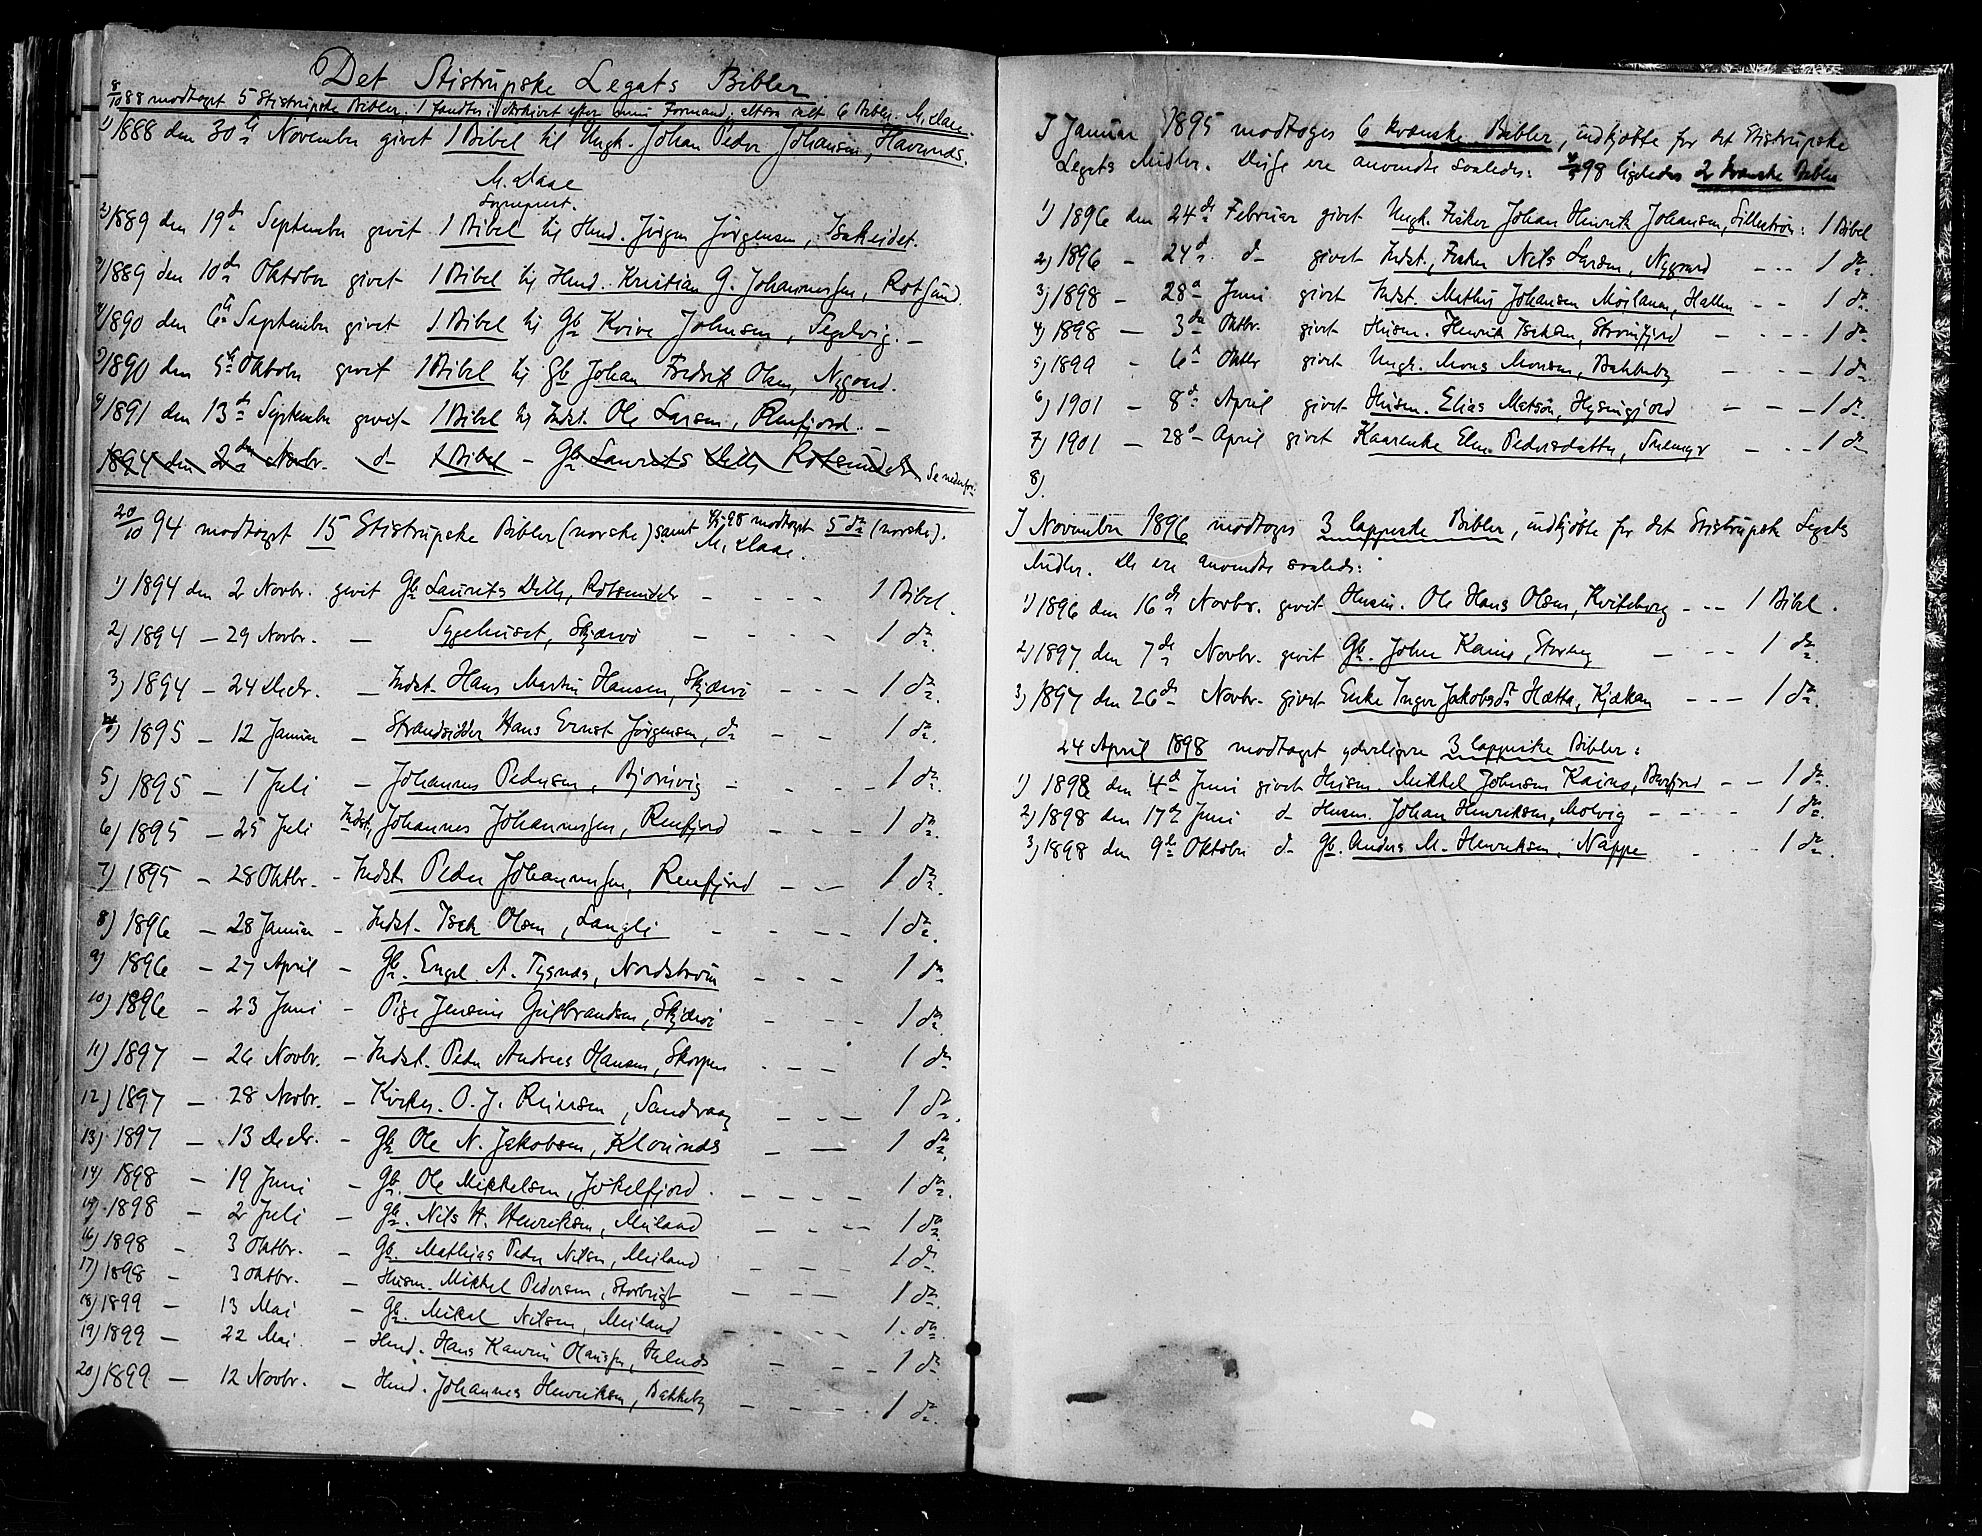 Det Stistrupske Legats Bibler
8/10 88 modtaget 5 Stistrupske Bibler, 1 fandtes i Arkivet efter min Formand, altsaa ialt 6 Bibler. M. Daae.
1) 1888 den 30te November givet 1 Bibel til Ungk. Johan Peder Johansen, Havnnes.
M. Daae
Sognepræst.
2) 1889 den 19de September givet 1 Bibel til Husd. Jørgen Jørgensen, Isakeidet.
3) 1889 den 10de Oktober givet 1 Bibel til Husd. Kristian G. Johannessen, Rotsund.
4) 1890 den 6te September givet 1 Bibel til Gb. Johnsen, Segelvig. —
5) 1890 den 5te Oktober givet 1 Bibel til Gb. Johan Fredrik Olsen, Nygaard.
6) 1891 den 13de September givet 1 Bibel til Indst. Ole Larsen, Reinfjord. —
1894 den 2den Novbr. d 1 Bibel - Gb. Laurits Dell, Rotsundelv Se nedenfor.
20/10 94 modtaget 15 Stistrupske Bibler (norske) samt 98 modtaget 5 do (norske).
M. Daae.
1) 1894 den 2 Novbr. givet Gb. Laurits Dell, Rotsundelv - - - - 1 Bibel.
2) 1894 — 29 Novbr. — Sygehuset, Skjærvø - - - - 1 do.
3) 1894 — 24 Decbr. — Indst. Hans Martin Hansen, Skjærvø - - - 1 do.
4) 1895 — 12 Januar — Strandsidder Hans Ernst Jørgensen, do - - 1 do.
5) 1895 — 1 Juli — Johannes Pedersen, Bjørnvig - - - - 1 do.
6) 1895 — 25 Juli Indst. Johannes Johannessen, Reinfjord - - - 1 do.
7) 1895 — 28 Oktbr. - Indst. Peder Johannessen, Reinfjord - - 1 do.
8) 1896 — 28 Januar - Indst. Isak Olsen, Langli - - - - 1 do.
9) 1896 — 27 April - Gb. Engel A. Tygnæs, Nordstrøm - - - 1 do
10) 1896 — 23 Juni - Pige Jensine Gulbrandsen, Skjærvø - - - 1 do.
11) 1897 — 26 Novbr. - Indst. Peder Andreas Hansen, Skorpen - - - 1 do
12) 1897 — 28 Novbr. - Kirkes. O. J. Reiersen, Sandvaag - - - 1 do.
13) 1897 — 13 Decbr. - Gb. Ole N. Jakobsen, Klounes - — 1 do.
14) 1898 — 19 Juni - Gb. Ole Mikkelsen, Jøkelfjord. - - - - 1 do.
15) 1898 — 2 Juli — Gb. Nils H. Henriksen, Meiland - - - 1 do.
16) 1898 - 3 Oktbr. - Gb. Mathias Peder Nilsen, Meiland - - - 1 do.
17) 1898 — 3 Oktbr. - Husm. Mikkel Pedersen, Storbugt - - - 1 do.
18) 1899 — 13 Mai - Gb. Mikal Nilsen, Meiland - - - - 1 do.
19) 1899 — 22 Mai - Husd. Hans - - - 1 do
20) 1899 — 12 Novbr. — Husd. Johannes Henriksen, Bakkeby - - - - 1 do.
I Januar 1895 modtoges 6 kvænske Bibler, indkjøbte for det Stistrupske
Legats Midler. Disse ere anvendte saaledes: 98 ligeledes 2 kvænske Bibler
1) 1896 den 24de Februar givet Ungk. Fisker Johan Henrik Johansen, : 1 Bibel
2) 1896 — 24de do givet Indst., Fisker Nils Larsen, Nygaard - - - 1 do.
3) 1898 — 28de Juni givet Indst. Mathis Johansen Moilanen, Hallen - - 1 do.
4) 1898 — 3die Oktbr. givet Husm. Henrik Isaksen, Strømfjord - - - - 1 do
5) 1899 — 6te Oktbr givet Ungk. Mons Monsen, Bakkeby - - - - 1 do
6) 1901 — 8de April givet Husm. Elias Matson, - - - 1 do.
7) 1901 — 28de April givet Kaarenke Elen Pedersdatter, - - - 1 do
8).
I November 1896 modtoges 3 lappiske Bibler, indkjøbte for det Stistrupske Legats
Midler. De ere anvendte saaleds:
1) 1896 den 16de Novbr. givet Husm. Ole Hans Olsen, Kviteberg - - - 1 Bibel.
2) 1897 den 7de Novbr. givet Gb. John Kaino, Storeng - - - - 1 do.
3) 1897 den 26de Novbr. givet Enke Inger Jakobsdt. Hætta, Kjækan - - - 1 do.
24 April 1898 modtaget yderligere 3 lappiske Bibler:
1) 1898 den 4de Juni givet Husm. Mikkel Johnsen Kaino, Burfjord - - 1 do.
2) 1898 den 17de Juni d Husm. Johan Henriksen, Molvig - - - - 1 do.
3) 1898 den 9de Oktober d Gb. Anders M. Henriksen, Nappe - - - 1 do.